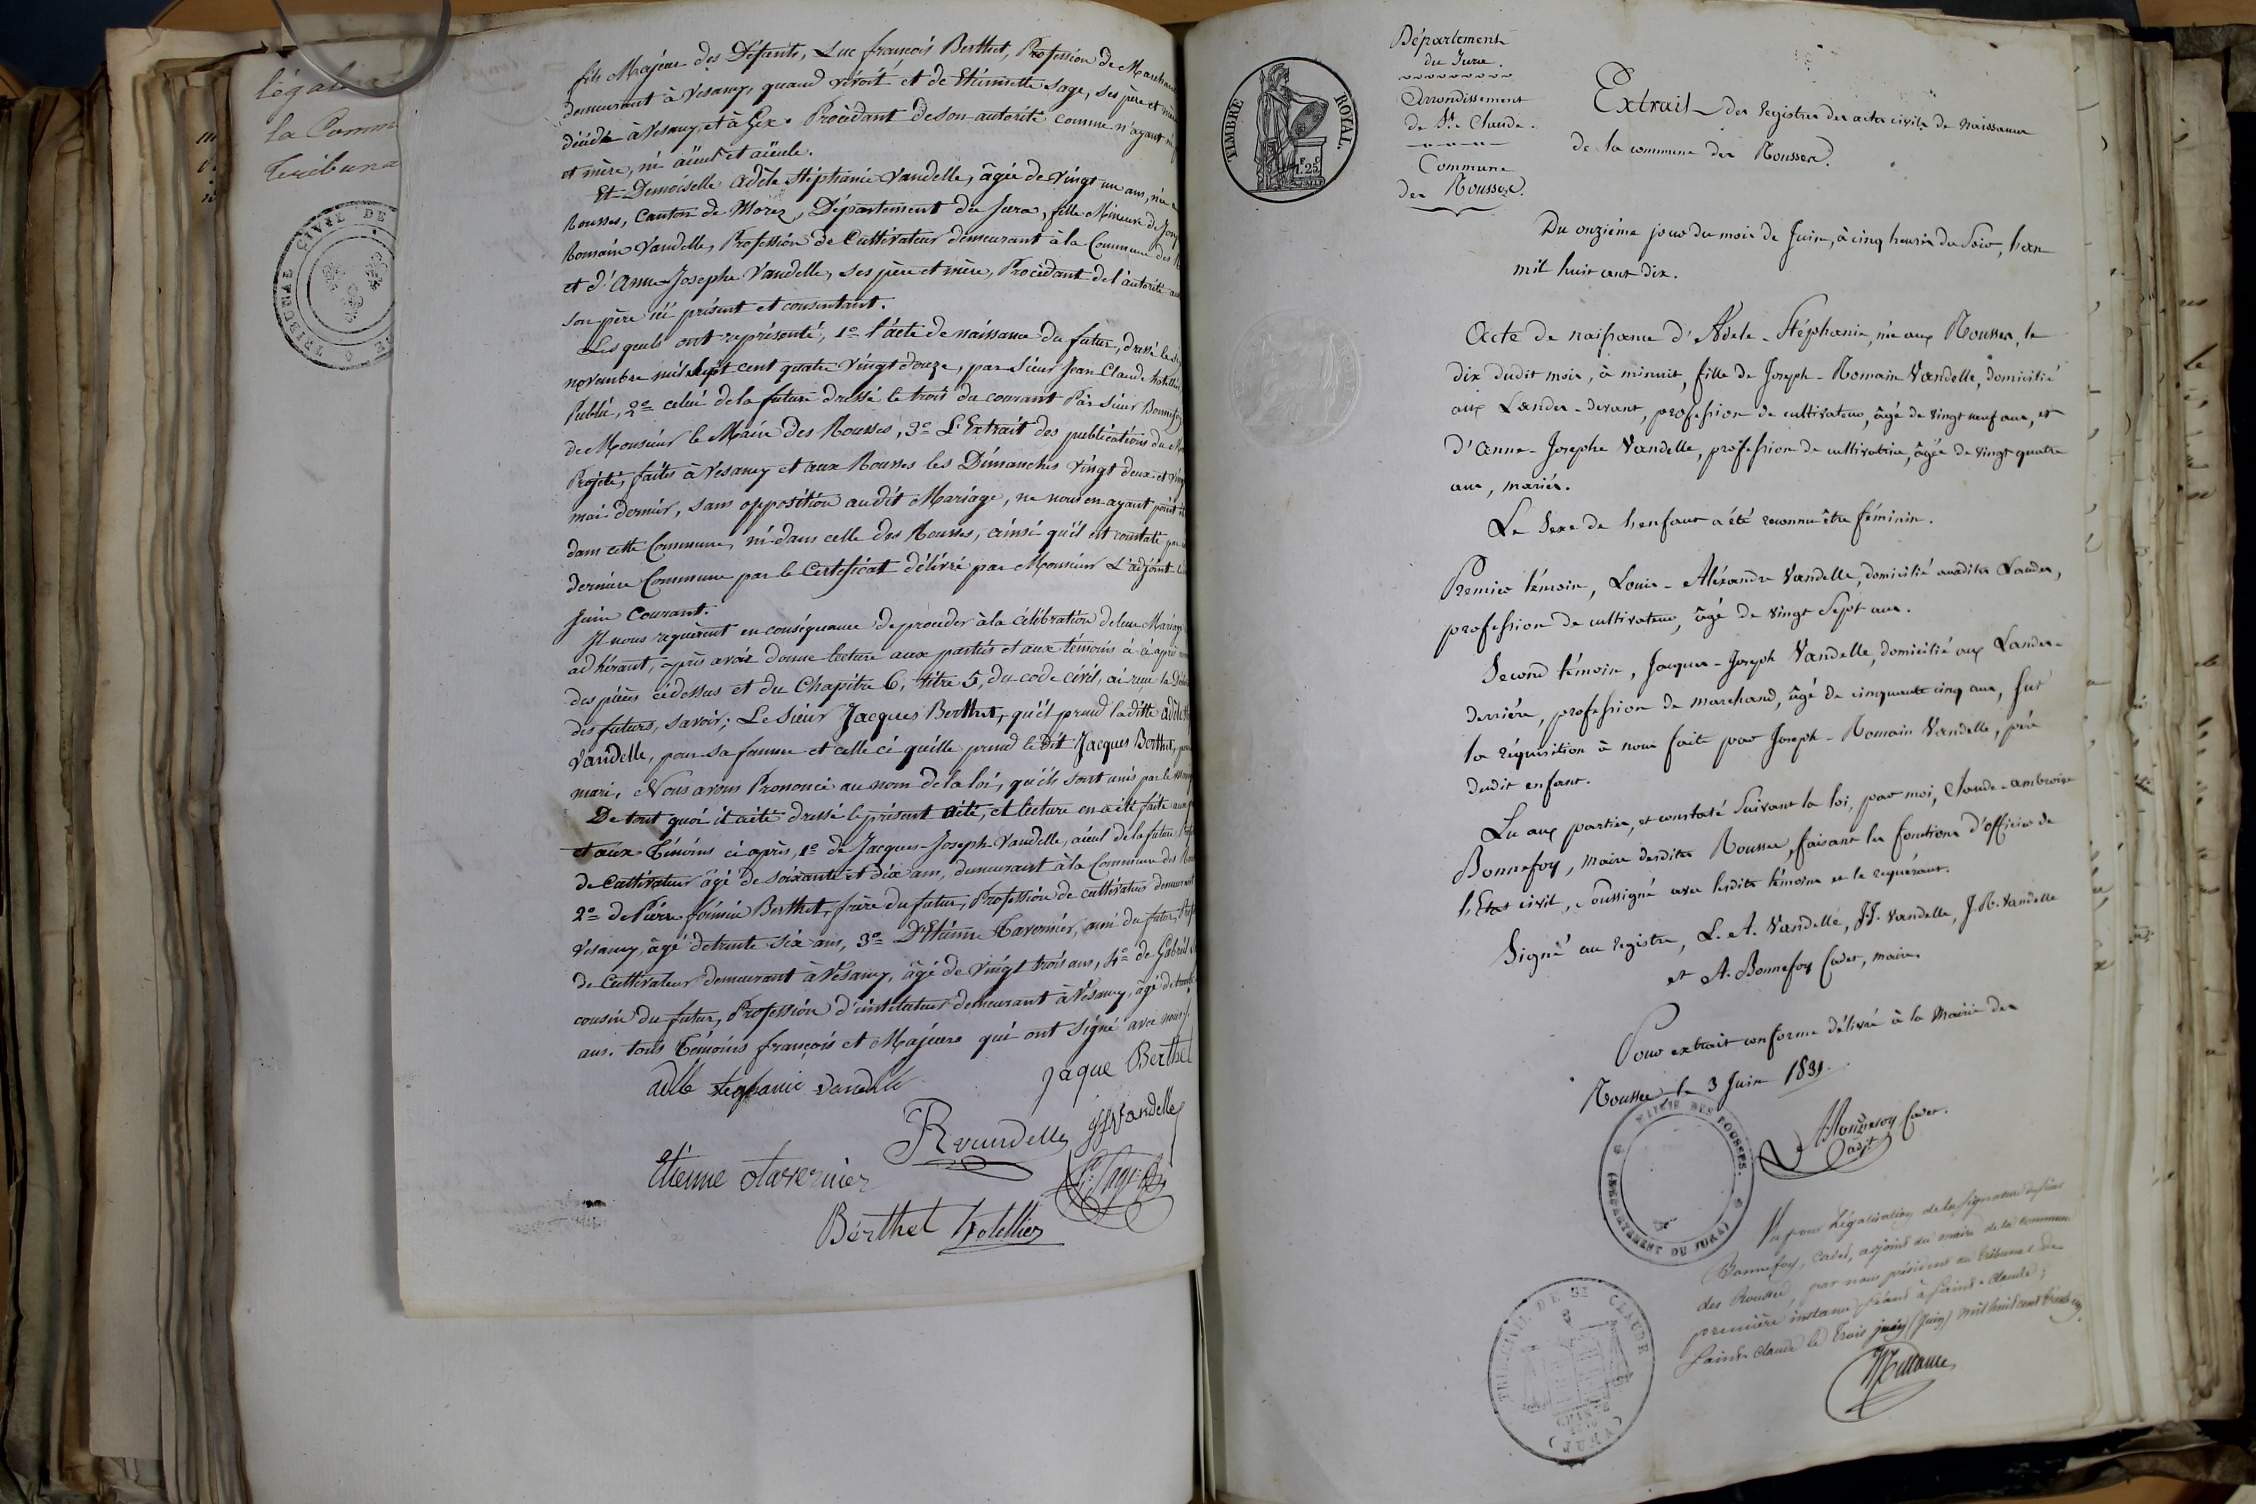 légalis
la Comm
Tribuna
TRIBUNAL CIVIL DE
fils Majeur des Défunts, Luc françois Berthet, Profession de Marchand
demeurant à Vesancy, quand vivoit, et de Etiennette Sage, ses père et mère
décédés à Vesancy et à Gex. Procédant de son autorité comme n'ayant ni p
et mère, ni aïeul et aïeule.
Et Demoiselle Adèle Stéphanie Vandelle, âgée de vingt un ans, née a
Rousses, Canton de Morez, Département du Jura, fille Mineure de Jose
Romain Vandelle, Profession de Cultivateur demeurant à la Commune des R
et d'Anne Josephe Vandelle, ses père et mère, Procédant de l'autorité
son père ici présent et consentant.
Lesquels ont représenté, 1º l'acte de naissance du futur, dressé le
novembre mil sept cent quatre vingt douze, par sieur Jean Claude hotellier
Public, 2º celui de la future dressé le trois du courant Par sieur Bonnefoy
de Monsieur le Maire des Rousses, 3º L'Extrait des publications du
Projeté, faites à Vesancy et aux Rousses les Dimanches vingt deux et ving
mai dernier, sans opposition audit Mariage, ne nous en ayant point été
dans cette Commune, ni dans celle des Rousses, ainsi qu'il est constaté pour
dernière Commune par le Certificat délivré par Monsieur L'adjoint le
Juin Courant.
Il nous requièrent en conséquence de procéder à la célébration de leur Mariage
adhérant, après avoir donné lecture aux parties et aux témoins ci après
des pièces cidessus et du Chapitre 6, titre 5, du code civil, ai reçu la Décla
des futurs, savoir; Le Sieur Jacques Berthet, qu'il prend la ditte adèle sté
Vandelle, pour sa femme et celle ci qu'elle prend le dit Jacques Berthet, pour
mari, Nous avons Prononcé au nom de la loi, qu'ils sont unis par le mariage
De tout quoi il a été dressé le présent acte, et lecture en a été faite aux p
et aux Témoins ci après, 1º de Jacques-Joseph-Vandelle, aïeul de la future Profes
de Cultivateur âgé de soixante et dix ans, demeurant à la Commune des Rou
2º de Pierre firmin Berthet, frère du futur, Profession de cultivateur demeurant
Vesancy, âgé de trente six ans, 3º D'Etienne Tavernier, ami du futur, Profe
de Cultivateur demeurant à Vesancy, âgé de vingt trois ans, 4º de Gabriel
cousin du futur, Profession d'instituteur demeurant à Vesancy, âgé de trente
ans. tous témoins français et Majeurs qui ont signé avec nous.
adele stephanie vandelle
Jaque Berthet
JRvandelle
JJvandelle
Etienne tavernier
Berthet
hotellier
TIMBRE ROYAL
1F. 25C
Département
du Jura.
Arrondissement
de St. Claude.
Commune
des Rousses.
Extrait des registres des actes civils de naissance
de la commune des Rousses.
Du onzième jour du mois de Juin, à cinq heures du Soir, l'an
mil huit cent dix.
Acte de naissance d'Adele-Stéphanie, née aux Rousses, le
dix dudit mois, à minuit, fille de Joseph-Romain Vandelle, domicilié
aux Landes-devant, profession de cultivateur, âgé de vingt neuf ans, et
d'Anne-Josephe Vandelle, profession de cultivatrice, âgée de vingt quatre
ans, mariés.
Le Sexe de l'enfant a été reconnu être féminin.
Premier témoin, Louis-Aléxandre Vandelle, domicilié auxdites Landes,
profession de cultivateur, âgé de vingt Sept ans.
Second témoin, Jacques-Joseph Vandelle, domicilié aux Landes-
derrière, profession de marchand, âgé de cinquante cinq ans, Sur
la réquisition à nous faite par Joseph-Romain Vandelle, père
dudit enfant.
Lu aux parties, et constaté Suivant la loi, par moi, Claude-ambroise
Bonnefoy, maire desdites Rousses, faisant les fonctions d'officier de
l'Etat civil, Soussigné avec lesdits témoins et le requérant.
Signé au registre, L. A. Vandelle, J.J. Vandelle, J. R. Vandelle
et A. Bonnefoy Cadet, maire.
Pour extrait conforme délivré à la Mairie des
Rousses le 3 Juin 1831.
Bonnefoy Cadet.
adjt
MAIRIE DES ROUSSES.
(DÉPARTEMENT DU JURA)
Vu pour Légalisation de la Signature du Sieur
Bonnefoy, Cadet, adjoint au maire de la commune
des Rousses, par nous président au tribunal de
première instance Séant à Saint-Claude;
Saint-Claude le trois juin (Juin) mil huit cent trente un.
TRIB. CIVIL DE ST CLAUDE
(JURA)